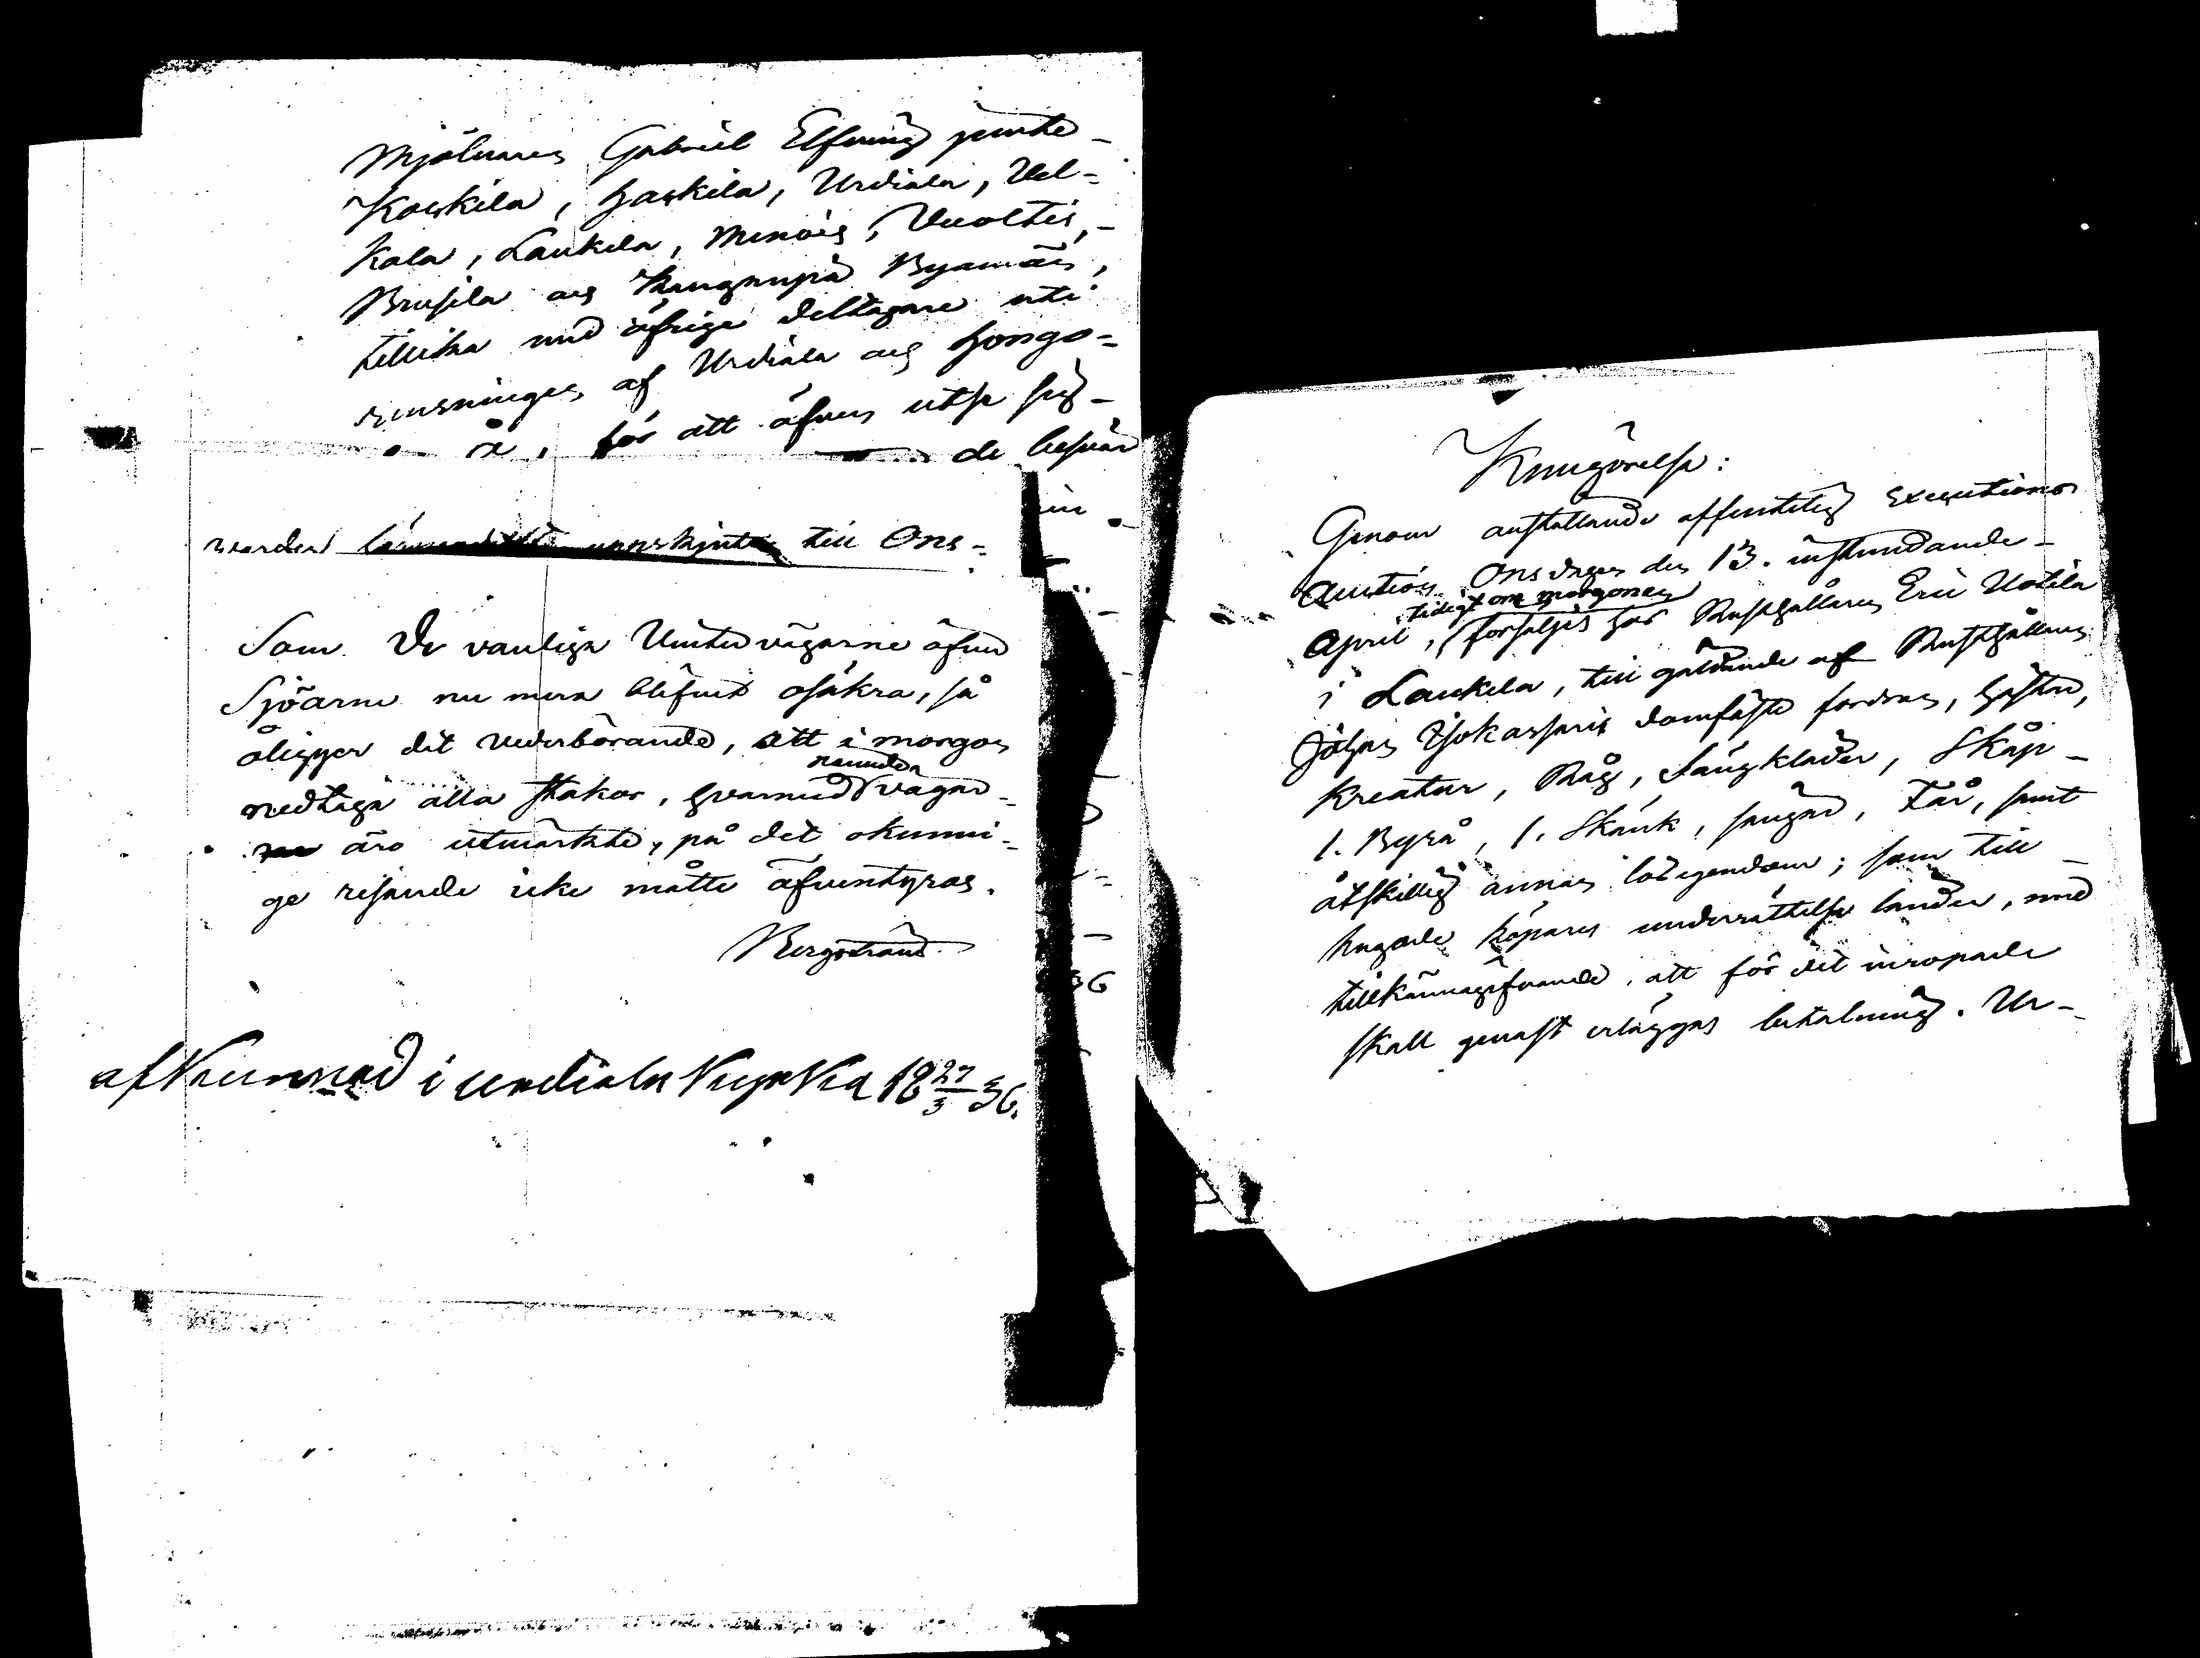 Mjölnaren Gabriel Elfving jemte
Koskila, Haskila, Urdiala, Vel-
kala, Laukela, Menois, Vuoltis,
Brusila och Kangaspä Byamän,
tillika med öfrige deltagare uti
rensningen af Urdiala och Hongo-
å, för att äfven utse
de besvär
werder till Ons-
Som De vanliga Vintervägarne öfver
Sjöarne nu mera blifvit osäkra, så
åligger det vederbörande, att i morgon
nedtaga alla stakar, hvarmed nämnda vägar-
ne äro utmärkte, på det okunni-
ge resande icke måtte äfventyras.
Bergstrand
afkunnad i urdiala kyrka 18 27/3 36.
Kungörelse:
Genom anställande offentelig Executions
Auction Onsdagen den 13. instundande
April, tidigt om morgonen försäljes hos Rusthållaren Eric Uotila
i Laukela, till gäldande af Rusthållaren
Johan Isokasparis domfäste fordran, Hästar,
Kreatur, Råg, Sängkläder, Skåp
1. Byrå, 1. Skänk, sängar, Får, samt
åtskillig annan lösegendom; som till
hugade köpares underrättelse länder, med
tillkännagifvande, att för det inropade
skall genast erläggas betalning. Ur-